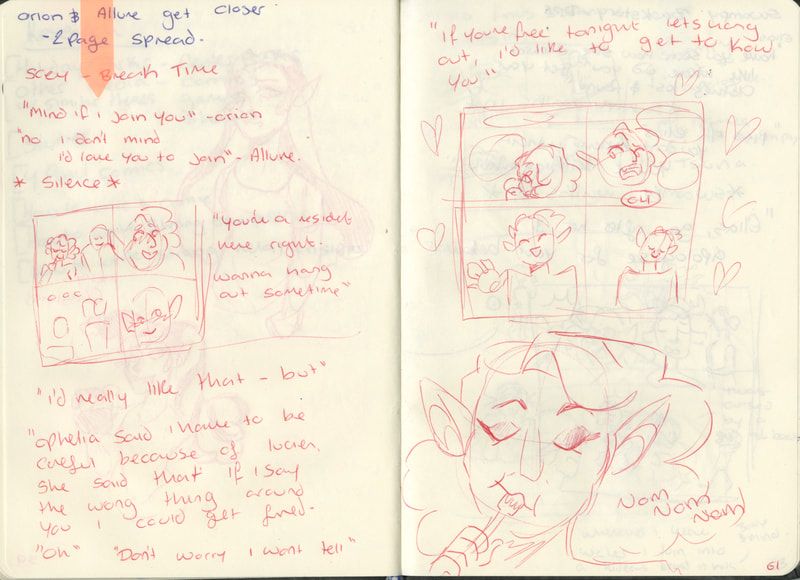 orion & Allure get closer
-2 page spread.
scen - Break Time
"Mind if i join you" - orion
"no i don't mind
i'd love you to join" - Allure.
* Silence *
"You're a residet
here right.
wanna hang
out sometime"
"i'd really like that - but"
"ophelia said i have to be
careful because of lucien.
she said that if i say
the wrong thing around
you i could get fired.
"Oh" "Don't worry i wont tell"
"if you're free tonight lets hang
out, i'd like to get to know
you"
Nom
Nom
Nom
61